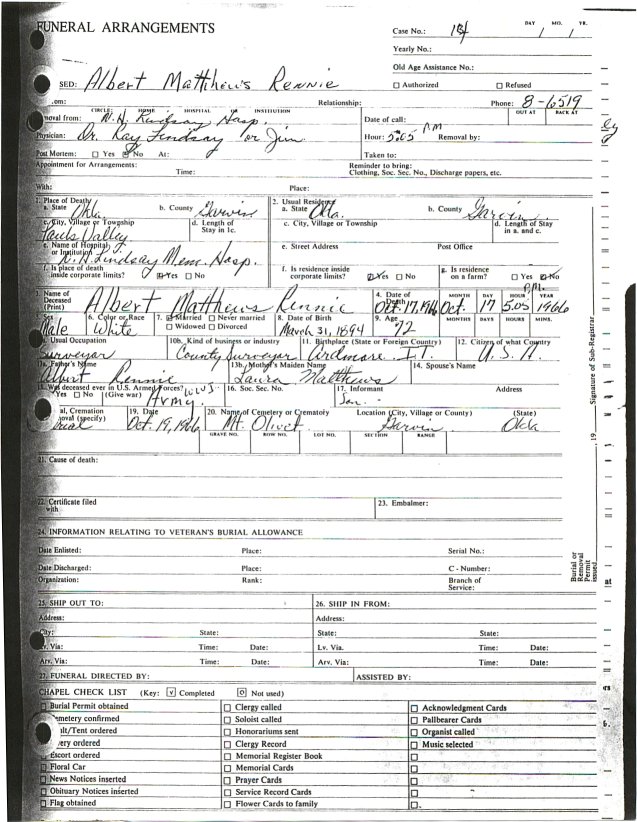 FUNERAL ARRANGEMENTS
DAY MO. YR.
Case No.: / /
Yearly No.:
Old Age Assistance No.:
SED: Albert Matthews Rennie
☐ Authorized ☐ Refused
om: Relationship: Phone: 8-6519
CIRCLE: HOME HOSPITAL INSTITUTION OUT AT BACK AT
moval from: N.H. Lindsay Hosp. Date of call:
Physician: Dr. Ray Lindsay or Jim Hour: 5:05 PM Removal by:
Post Mortem: ☐ Yes ☑ No At: Taken to:
Appointment for Arrangements: Reminder to bring:
Time: Clothing, Soc. Sec. No., Discharge papers, etc.
With: Place:
1. Place of Death 2. Usual Residence
a. State Okla. b. County Garvin a. State Okla. b. County Garvin
c. City, Village or Township d. Length of Stay in 1c. c. City, Village or Township d. Length of Stay in a. and c.
Pauls Valley
e. Name of Hospital or Institution e. Street Address Post Office
N.H. Lindsay Mem. Hosp.
f. Is place of death inside corporate limits? ☑ Yes ☐ No f. Is residence inside corporate limits? ☑ Yes ☐ No g. Is residence on a farm? ☐ Yes ☑ No
3. Name of Deceased (Print) Albert Matthews Rennie 4. Date of Death Oct. 17, 196 MONTH Oct. DAY 17 HOUR 5:05 P.M. YEAR 1966
5. Sex Male 6. Color or Race White 7. ☑ Married ☐ Never married ☐ Widowed ☐ Divorced 8. Date of Birth March 31, 1894 9. Age 72 MONTHS DAYS HOURS MINS.
Usual Occupation 10b. Kind of business or industry 11. Birthplace (State or Foreign Country) 12. Citizen of what Country
Surveyor County Surveyor Ardmore I.T. U.S.A.
Father's Name 13b. Mother's Maiden Name 14. Spouse's Name
Albert Rennie Laura Matthews
15. Was deceased ever in U.S. Armed Forces? 16. Soc. Sec. No. 17. Informant Address
Yes ☐ No (Give war) Army Son.
al, Cremation 19. Date 20. Name of Cemetery or Crematory Location (City, Village or County) (State)
oval (specify)
Burial Oct. 19, 1966 Mt. Olivet Garvin Okla
GRAVE NO. ROW NO. LOT NO. SECTION RANGE
21. Cause of death:
22. Certificate filed with 23. Embalmer:
24. INFORMATION RELATING TO VETERAN'S BURIAL ALLOWANCE
Date Enlisted: Place: Serial No.:
Date Discharged: Place: C - Number:
Organization: Rank: Branch of Service:
25. SHIP OUT TO: 26. SHIP IN FROM:
Address: Address:
City: State: State: State:
Lv. Via: Time: Date: Lv. Via: Time: Date:
Arv. Via: Time: Date: Arv. Via: Time: Date:
27. FUNERAL DIRECTED BY: ASSISTED BY:
CHAPEL CHECK LIST (Key: ☑ Completed ☐ Not used)
Burial Permit obtained ☐ Clergy called ☐ Acknowledgment Cards
emetery confirmed ☐ Soloist called ☐ Pallbearer Cards
ult/Tent ordered ☐ Honorariums sent ☐ Organist called
ery ordered ☐ Clergy Record ☐ Music selected
Escort ordered ☐ Memorial Register Book
Floral Car ☐ Memorial Cards
News Notices inserted ☐ Prayer Cards
Obituary Notices inserted ☐ Service Record Cards
Flag obtained ☐ Flower Cards to family
Signature of Sub-Registrar
19
Burial or Removal Permit issued